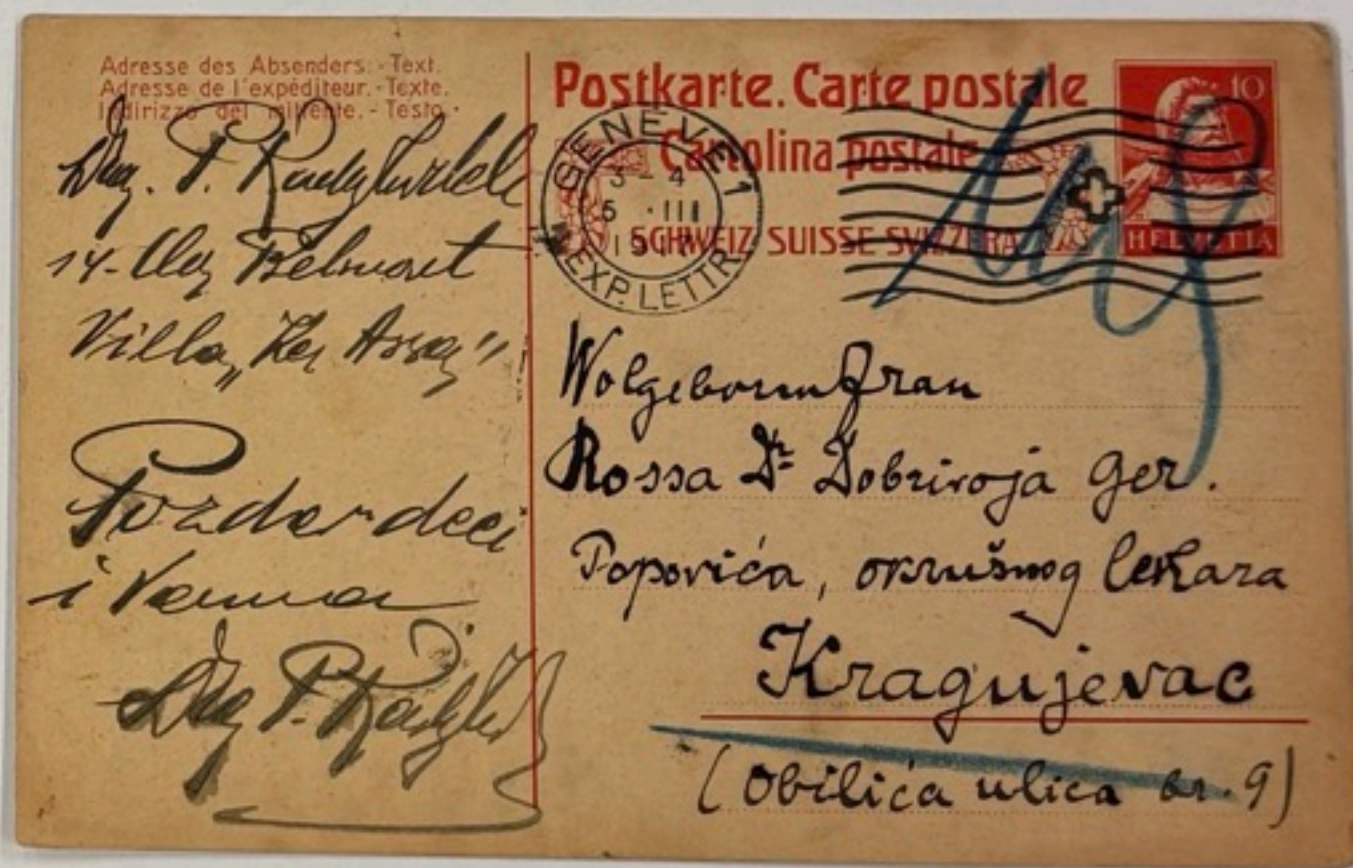 Adresse des Absenders. - Text.
Adresse de l'expéditeur. - Texte.
Indirizzo del mittente. - Testo.
P.
14 - Belmont
Villa „Ker
Pozdar deci
i Vama
P.
Postkarte. Carte postale
Cartolina postale
SCHWEIZ SUISSE SVIZZERA
10
HELVETIA
GENÈVE 1
3 - 4
5 ·III
1917
EXP. LETTR.
Wolgeborene Frau
Rossa Dr Dobrivoja Ger.
Popovića, okružnog lekara
Kragujevac
(Obilića ulica br. 9)